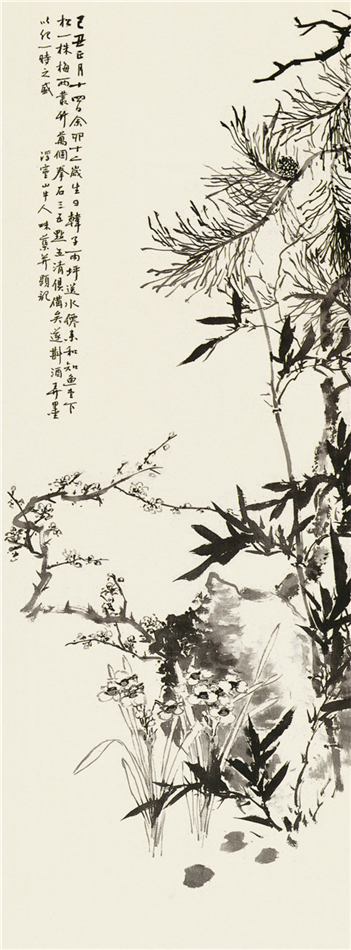 己丑正月十四日余十歲生日韓子雨坪送水僊來和知魚堂下
松一株梅兩叢竹萬個拳石三五點五清俱備矣遂斟酒弄墨
以紀一時之盛
山半人味并題記